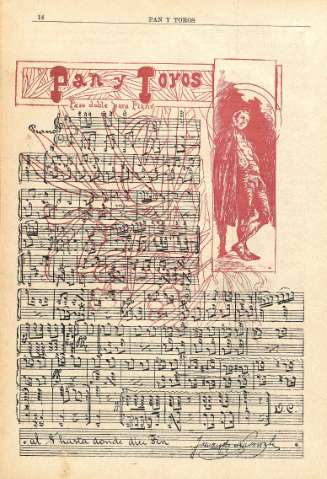 14
PAN Y TOROS
Pan y Toros
Paso doble para Piano
Piano
D.C.
al 𝄋 hasta donde dice Fin